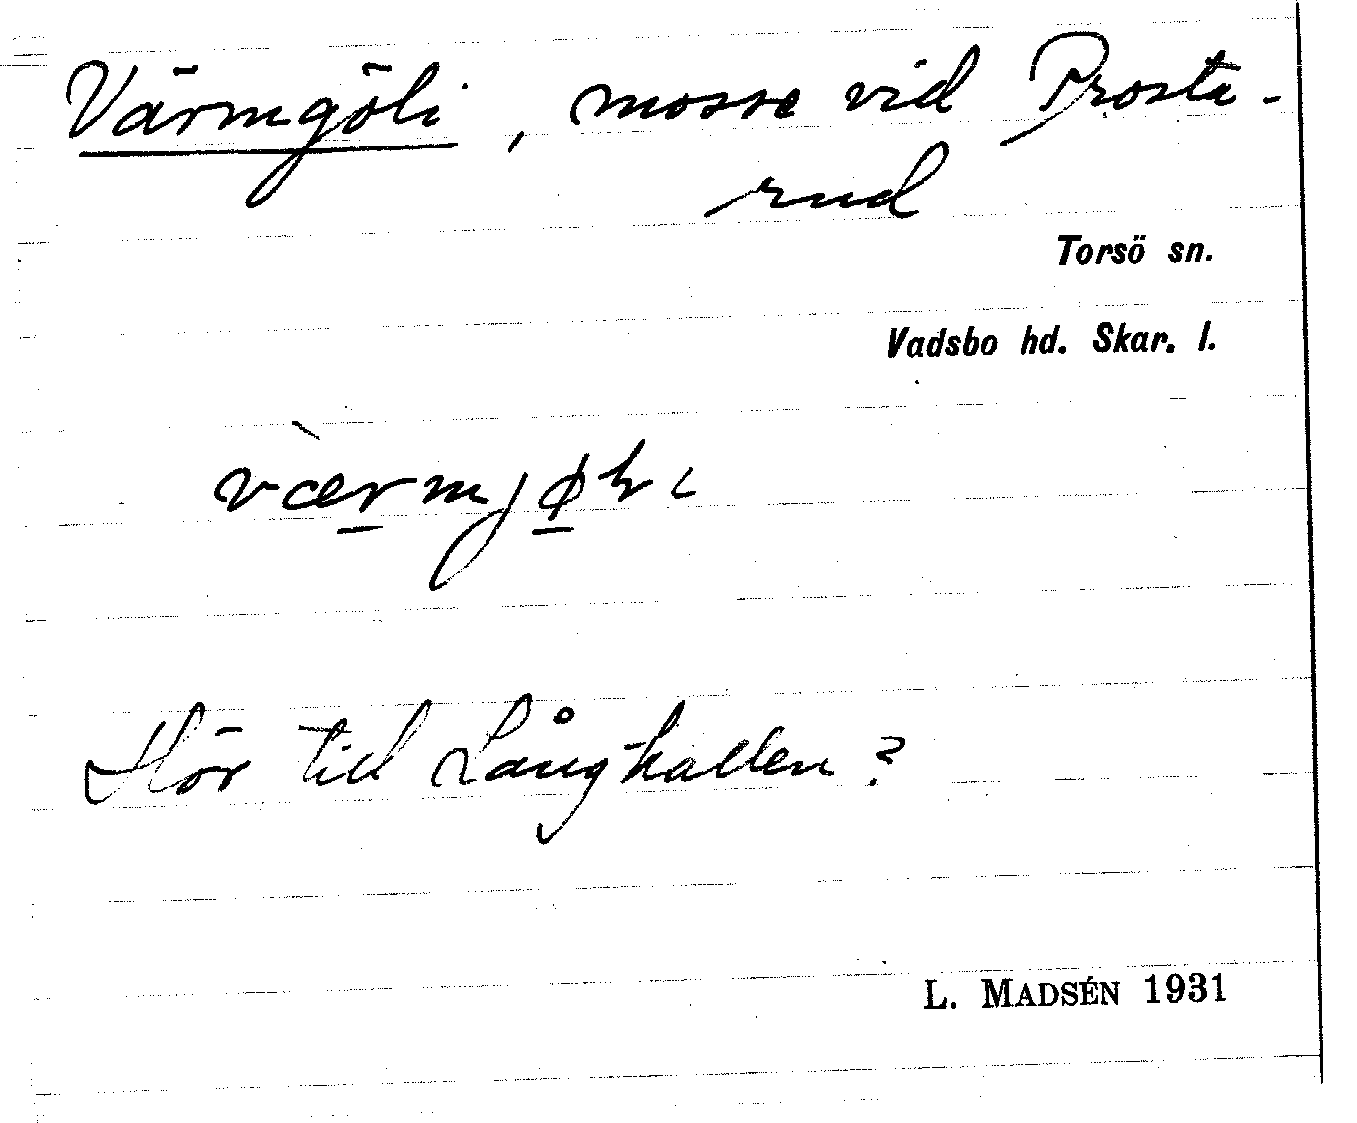 Värmgöli, mosse vid Prosta-
rud
Torsö sn.
Vadsbo hd. Skar. l.
Hör till Långkallen?
L. MADSÉN 1931